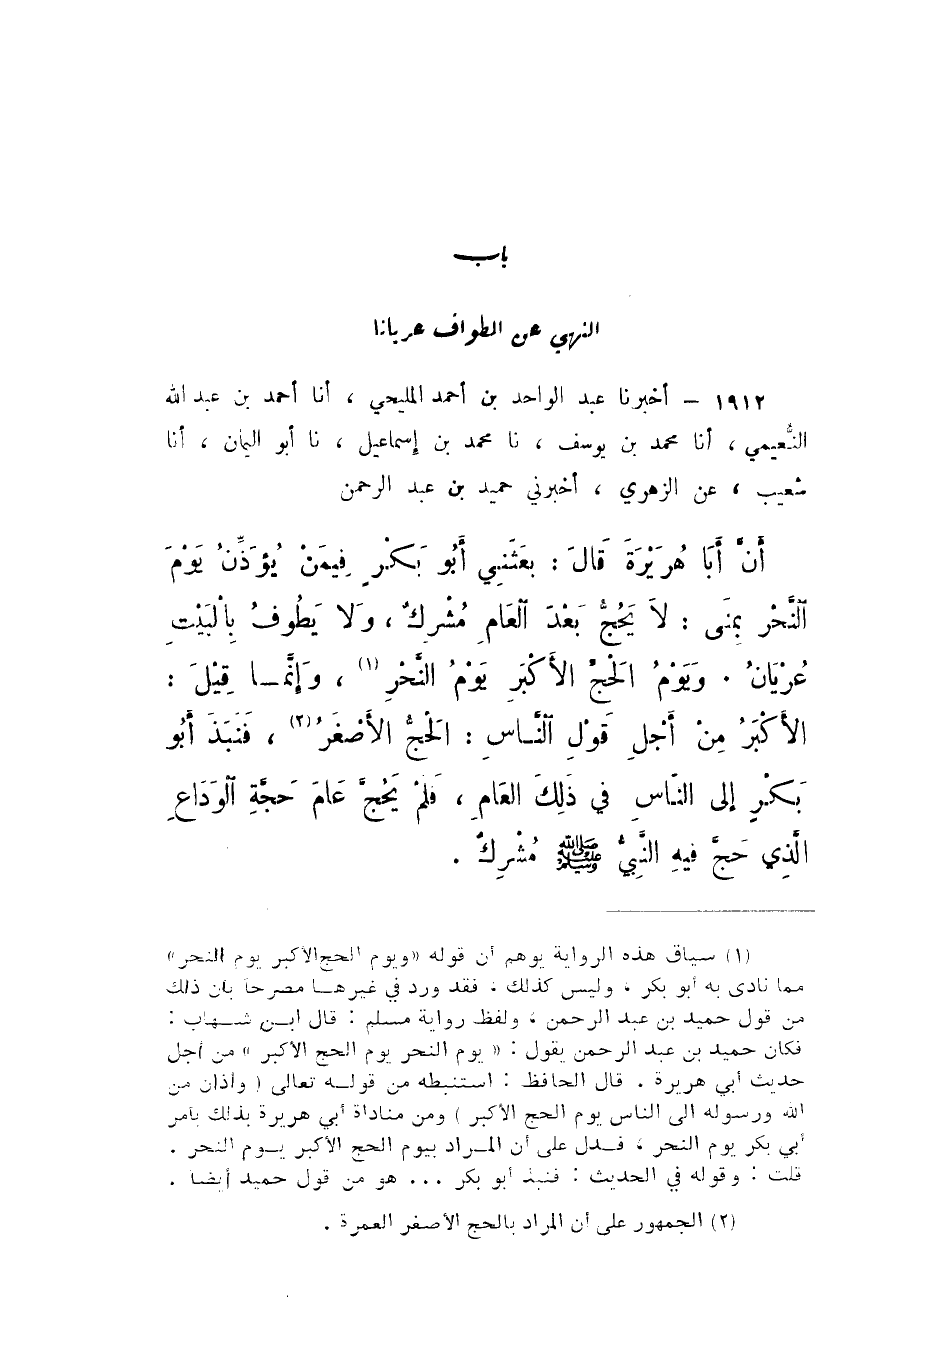 باب
النهي عن الطواف عريانا
١٩١٢ – أخبرنا عبد الواحد بن أحمد المليحي ، أنا أحمد بن عبد الله
النُّعيمي ، أنا محمد بن يوسف ، نا محمد بن إسماعيل ، نا أبو اليمان ، أنا
شعيب ، عن الزهري ، أخبرني حميد بن عبد الرحمن
أَنَّ أَبَا هُرَيْرَةَ قَالَ : بَعَثَنِي أَبُو بَكْرٍ فِيمَنْ يُؤَذِّنُ يَوْمَ
النَّحْرِ بِمِنَى : لاَ يَحُجُّ بَعْدَ العَامِ مُشْرِكٌ ، وَلا يَطُوفُ بِالْبَيْتِ
عُرْيَانُ . وَيَوْمُ الحَجِّ الأَكْبَرِ يَوْمُ النَّحْرِ (١) ، وَإِنَّمَـا قِيْلَ :
الأَكْبَرُ مِنْ أَجْلِ قَوْلِ النَّـاسِ : الحَجُّ الأَصْغَرُ (٢) ، فَنَبَذَ أَبُو
بَكْرٍ إلى النَّاسِ في ذَلِكَ العَامِ ، فَلَمْ يَحُجَّ عَامَ حَجَّةِ الوَدَاعِ
الَّذِي حَجَّ فِيهِ النَّبِيُّ ﷺ مُشْرِكٌ .
(١) سياق هذه الرواية يوهم أن قوله «ويوم الحج الأكبر يوم النحر»
مما نادى به أبو بكر ، وليس كذلك ، فقد ورد في غيرهـا مصرحاً بأن ذلك
من قول حميد بن عبد الرحمن ، ولفظ رواية مسلم : قال ابـن شـهاب :
فكان حميد بن عبد الرحمن يقول : « يوم النحر يوم الحج الأكبر » من أجل
حديث أبي هريرة . قال الحافظ : استنبطه من قولـه تعالى ( وأذان من
الله ورسوله الى الناس يوم الحج الأكبر ) ومن مناداة أبي هريرة بذلك بأمر
أبي بكر يوم النحر ، فـدل على أن المـراد بيوم الحج الأكبر يـوم النحر .
قلت : وقوله في الحديث : فنبذ أبو بكر ... هو من قول حميد أيضاً .
(٢) الجمهور على أن المراد بالحج الأصفر العمرة .